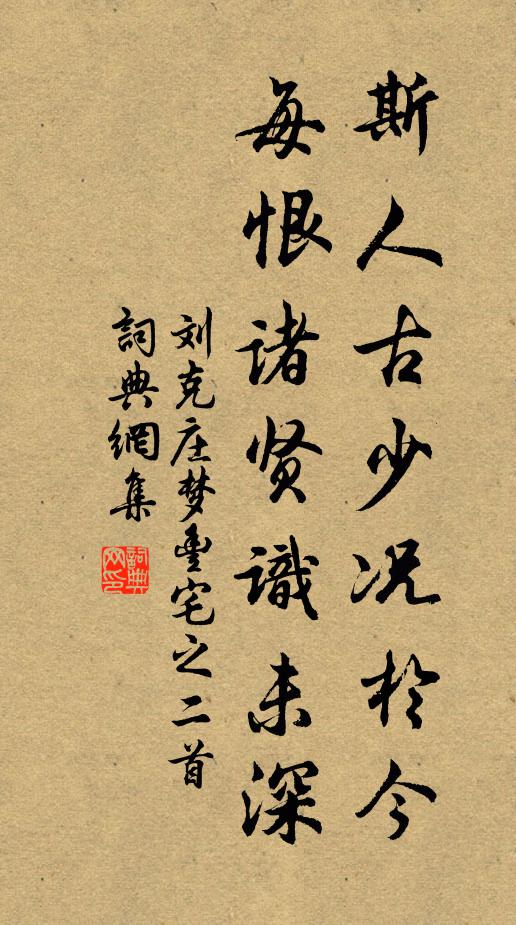 斯人古少况於今
每恨诸贤識未深
刘克庄梦豊宅之二首
詞典網集
詞典网印